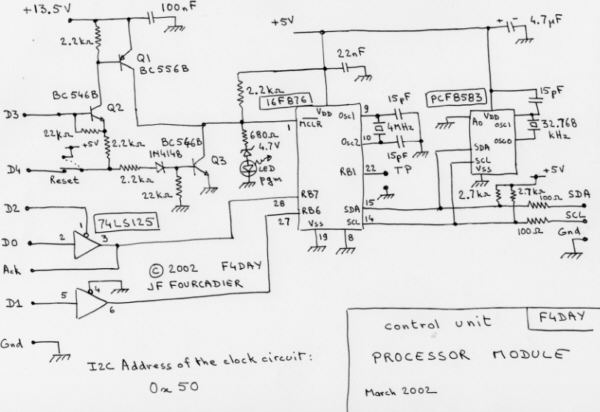 +13.5V
100nF
2.2kΩ
Q1
BC556B
+5V
4.7µF
22nF
BC546B
Q2
2.2kΩ
16F876
15pF
PCF8583
15pF
D3
22kΩ
+5V
2.2kΩ
BC546B
Q3
680Ω
4.7V
LED
Pgm
1
MCLR
VDD
OSC1
9
4MHz
OSC2
10
15pF
A0
VDD
OSC1
OSC0
32.768
kHz
D4
Reset
2.2kΩ
1N4148
22kΩ
RB1
22
TP
SDA
SCL
VSS
+5V
D2
1
74LS125
28
RB7
27
RB6
SDA
15
SCL
14
VSS
19
8
2.7kΩ
2.7kΩ
100Ω
SDA
SCL
100Ω
Gnd
D0
2
3
Ack
© 2002 F4DAY
JF FOURCADIER
D1
5
4
6
Gnd
I2C Address of the clock circuit:
0x50
control unit
F4DAY
PROCESSOR MODULE
March 2002